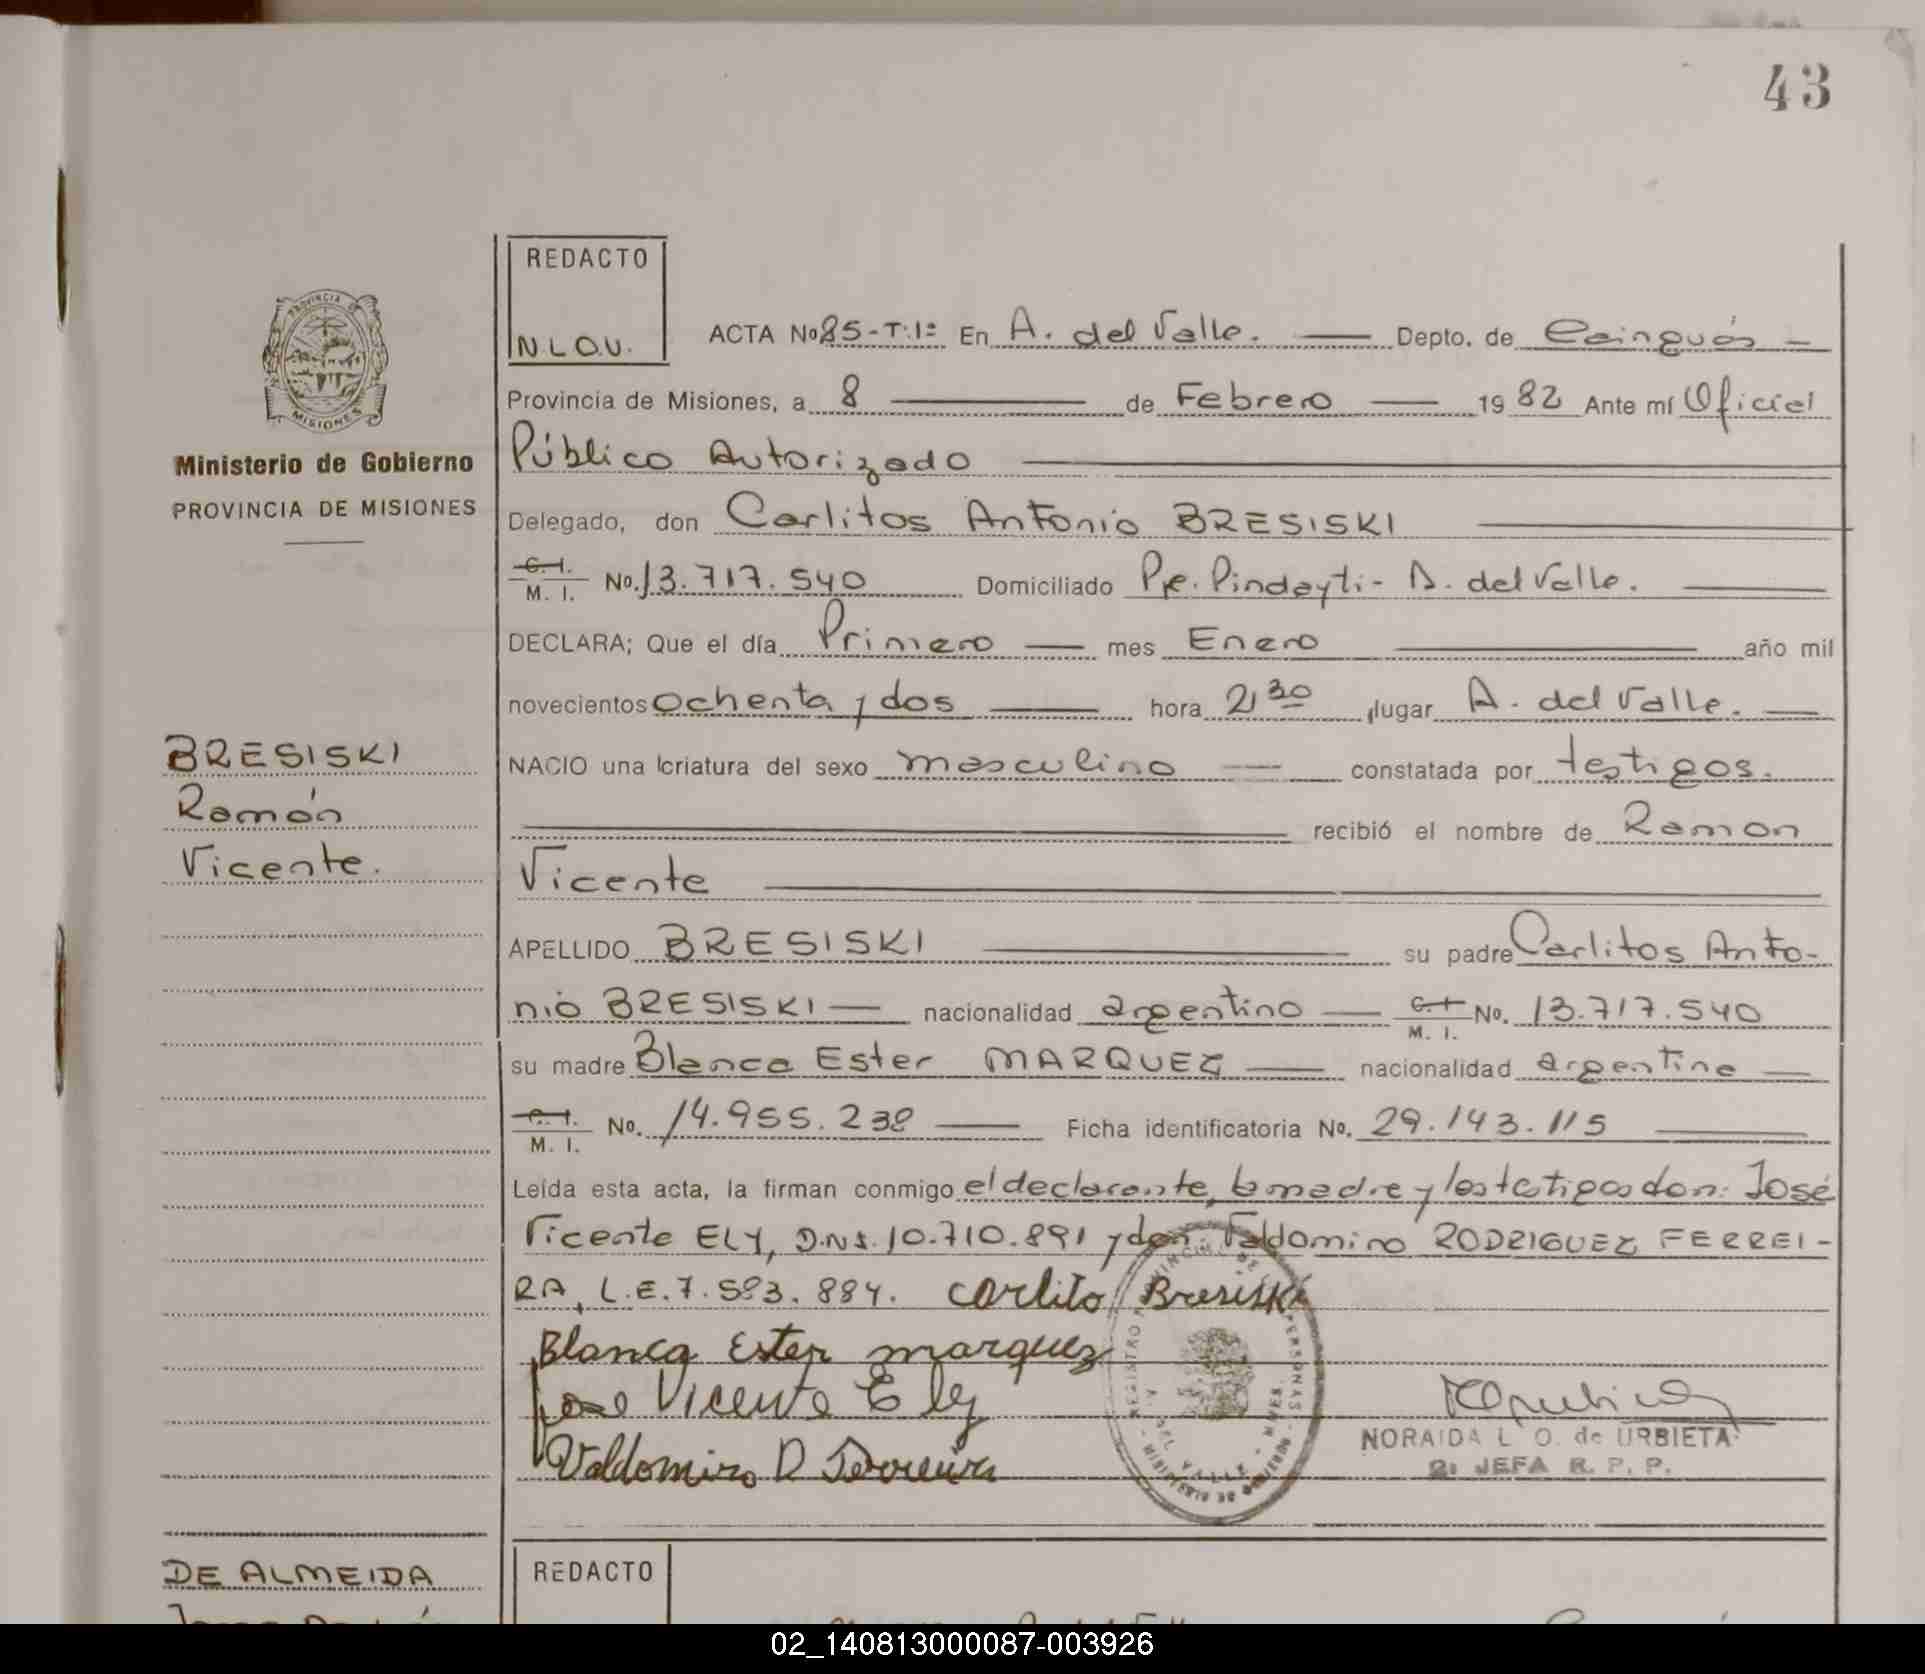 43
REDACTO
N.L.O.U.
ACTA No 85-T:1º En A. del Valle. Depto. de Cainguás -
PROVINCIA DE MISIONES
Provincia de Misiones, a 8 de Febrero 1982 Ante mí Oficial
Ministerio de Gobierno
PROVINCIA DE MISIONES
Público Autorizado
Delegado, don Carlitos Antonio BRESISKI
C. I. M. I. No. 13.717.540 Domiciliado Pje. Pindayti- A. del Valle.
DECLARA; Que el día Primero mes Enero año mil
novecientos ochenta y dos hora 21 30 lugar A. del Valle.
BRESISKI
Ramón
Vicente.
NACIO una criatura del sexo masculino constatada por testigos.
recibió el nombre de Ramon
Vicente
APELLIDO BRESISKI su padre Carlitos Anto-
nio BRESISKI nacionalidad argentino C. I. M. I. No. 13.717.540
su madre Blanca Ester MARQUEZ nacionalidad argentina
C. I. M. I. No. 14.955.238 Ficha identificatoria No. 29.143.115
Leída esta acta, la firman conmigo el declarante, la madre y los testigos don: José
Vicente ELY, D.N.I. 10.710.891 y don: Valdomiro RODRIGUEZ FERREI-
RA, L.E. 7.583.884. Carlito Bresiski
Blanca Ester marquez
Jose Vicente Ely
Valdomiro R Ferreira
NORAIDA L. O. de URBIETA
2ª JEFA R. P. P.
DE ALMEIDA
REDACTO
02_140813000087-003926